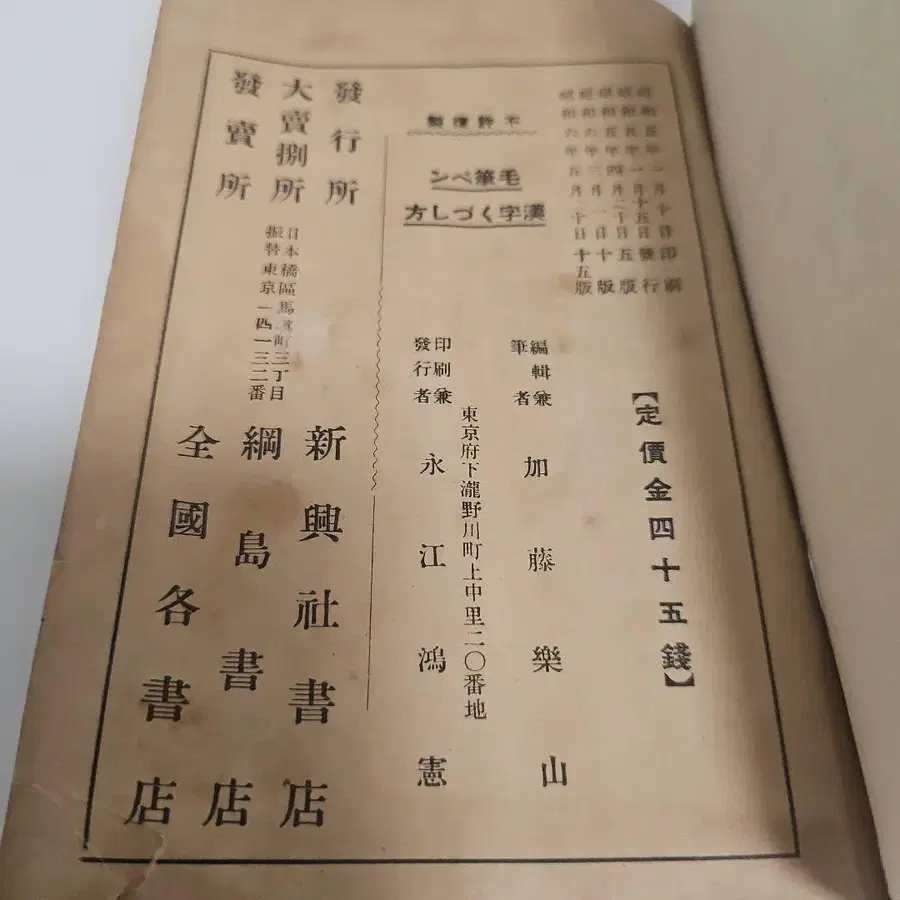 昭和五年一月十日印刷
昭和五年一月十五日發行
昭和五年四月二十日五版
昭和六年三月一日十版
昭和六年五月二十日十五版
【定價金四十五錢】
不許復製
毛筆ペン
漢字くづし方
編輯兼
筆者
加藤樂山
東京府下瀧野川町上中里二〇番地
印刷兼
發行者
永江鴻憲
發行所
新興社書店
大賣捌所
日本橋區馬町三丁目
振替東京一四一三二番
綱島書店
發賣所
全國各書店